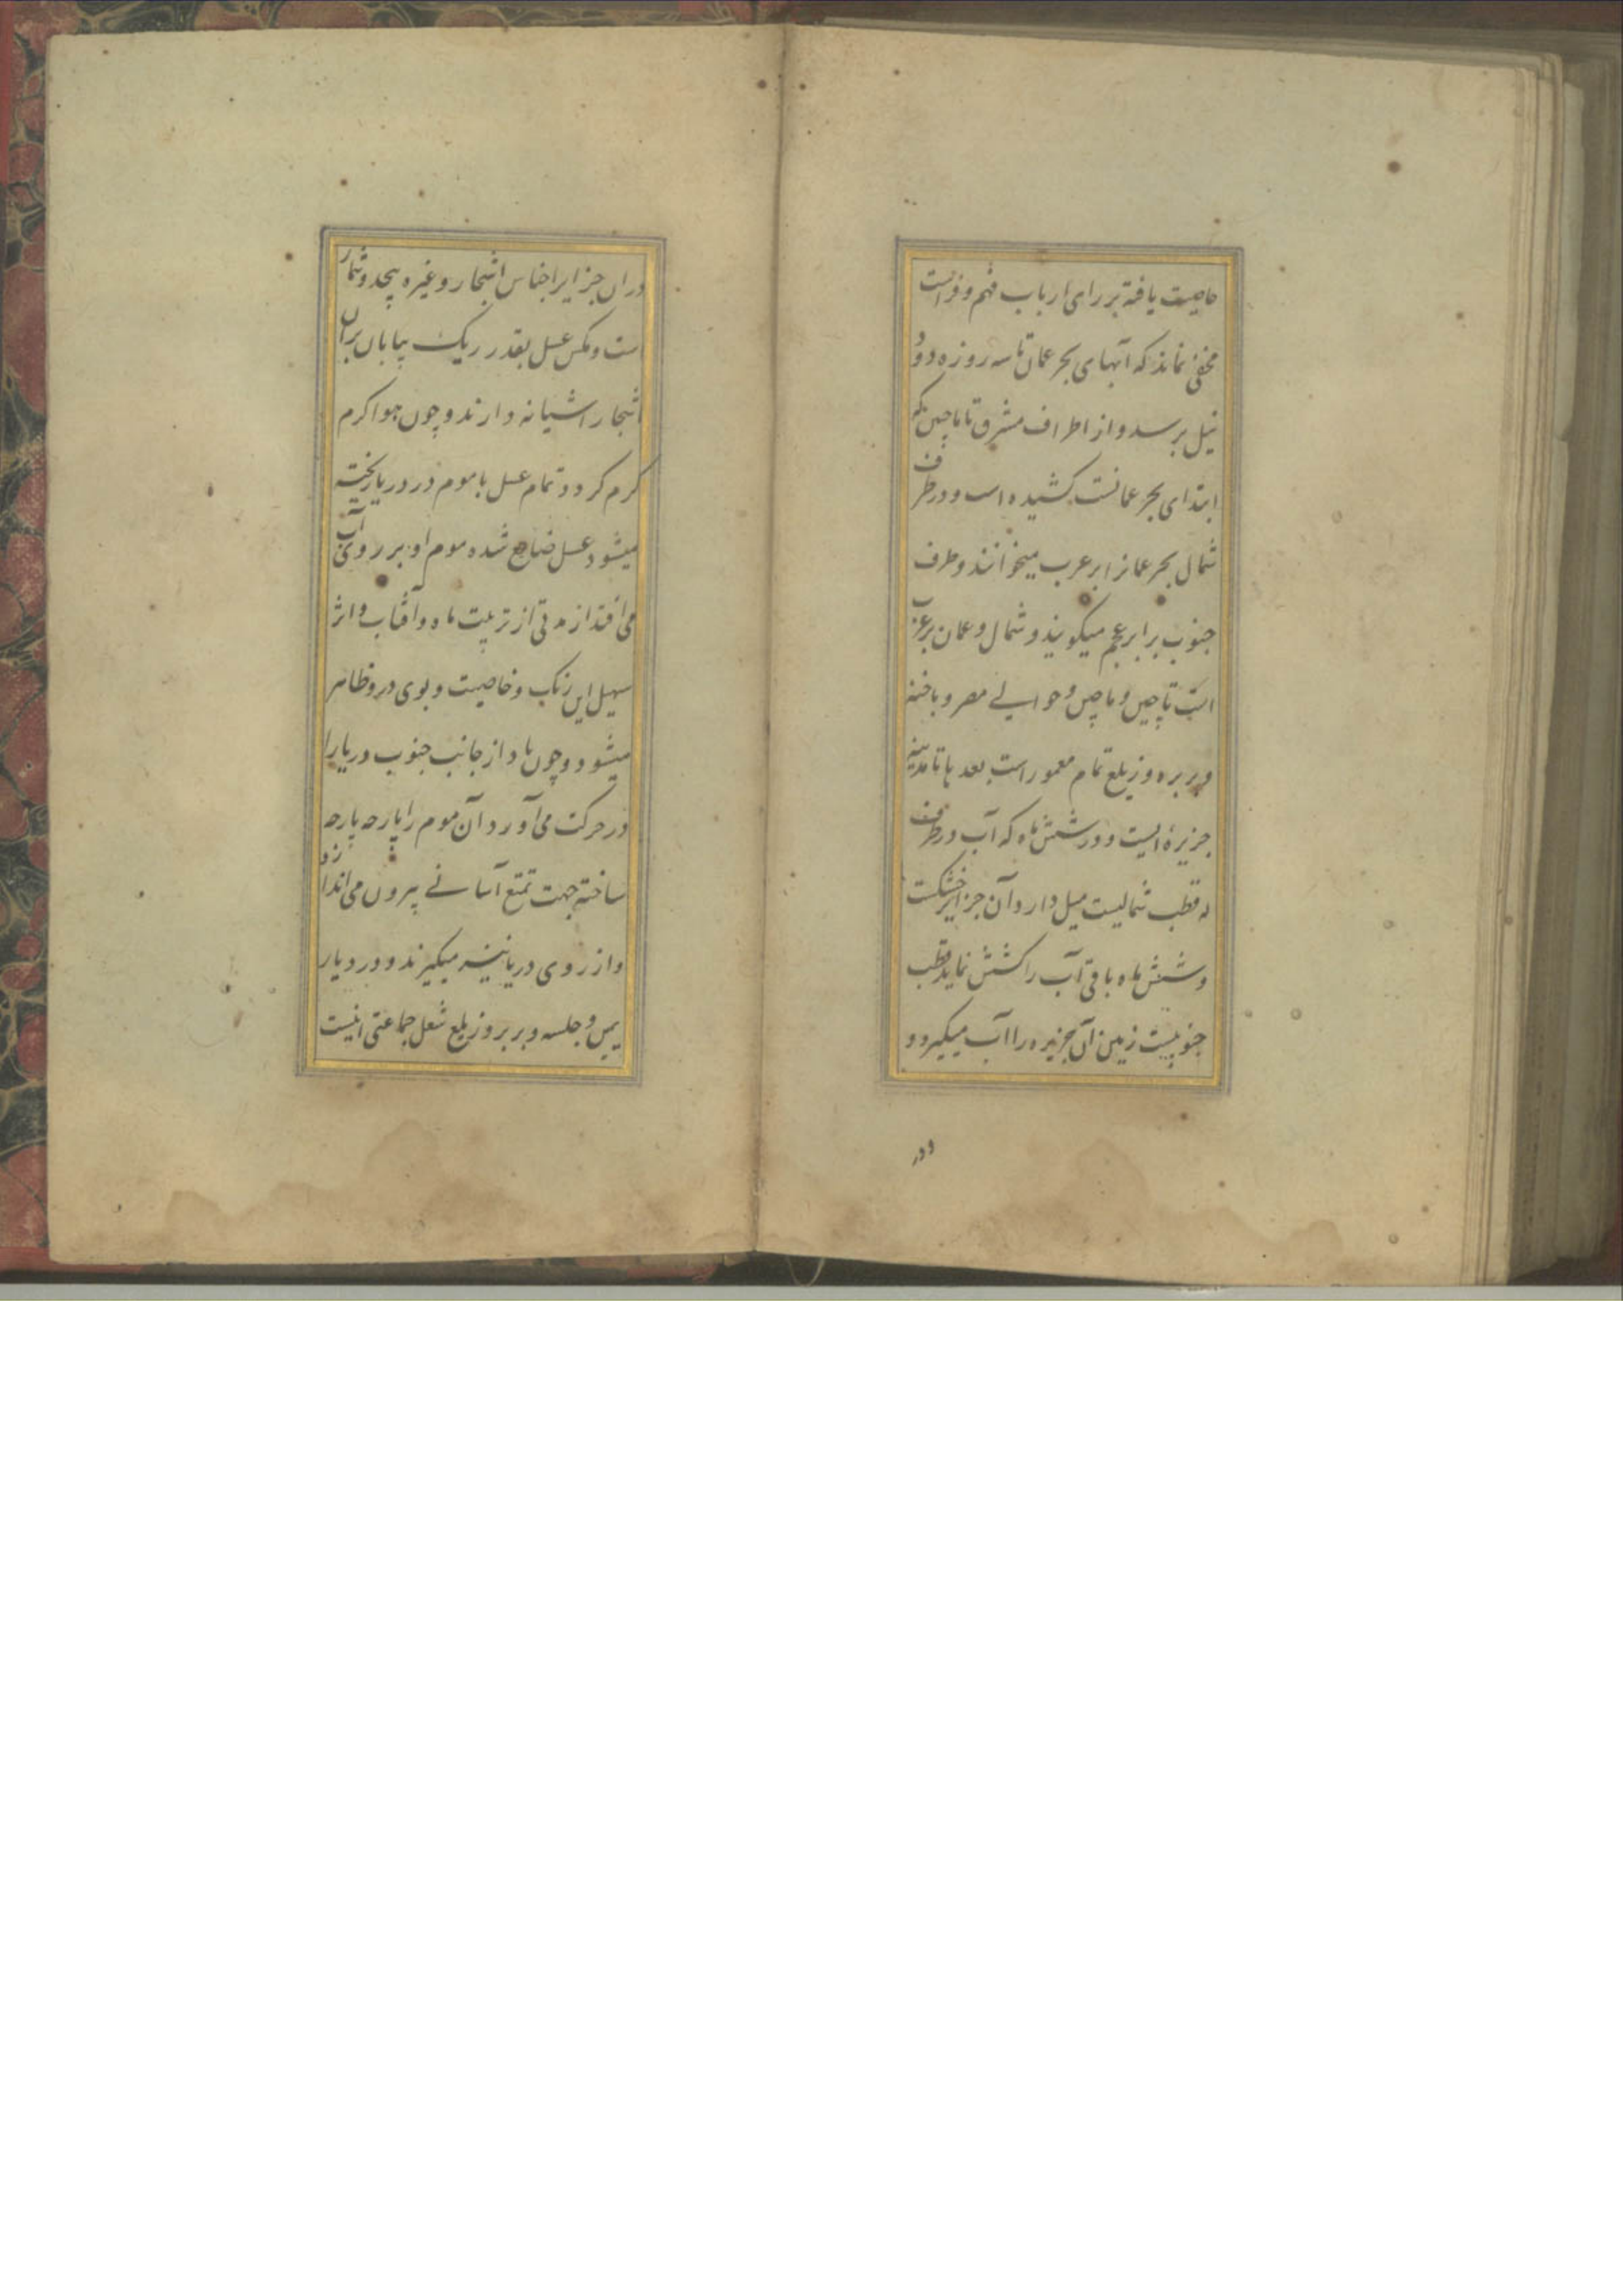 خاصیت یافته بر رای ارباب فهم و فراست
مخفی نماند که آبهای بحر عمان تا سه روزه رود
نیل برسد و از اطراف مشرق تا ماچین که
ابتدای بحر عمانست کشیده است و در طرف
شمال بحر عمانرا بر عرب میخوانند و طرف
جنوب برابر عجم میکویند و شمال و عمان بر عرب
است تا چین و ماچین و حوالی مصر و
و بربره و زیلع تمام معمور است بعد با تا مدینه
جزیرهٔ ایست و در شش ماه که آب در طرف
که قطب شمالیست میل دارد آن جزایر خشکست
و شش ماه باقی آب را کشش نماید قطب
جنوبیست زمین آن جزیره را آب میکیرد و
و در
دران جزایر اجناس اشجار و غیره بیحد و شمار
است و مکس عسل بقدر ریک بیابان بران
اشجار اشیانه دارند و چون هوا کرم
کرم کردد تمام عسل با موم در دریا ریخته
میشود عسل ضایع شده موم او بر روی آب
می افتد از مدتی از تربیت ماه و آفتاب و اثر
سهیل این رنک و خاصیت و بوی درو ظاهر
میشود و چون باد از جانب جنوب دریا را
در حرکت می آورد آن موم را پارحه پارحه
ساخته جهت تمتع آسانی بیرون می اندازد
و از روی دریا نیز میکیرند و در دیار
یمن و جلسه و بربر و زیلع شغل جماعتی اینست